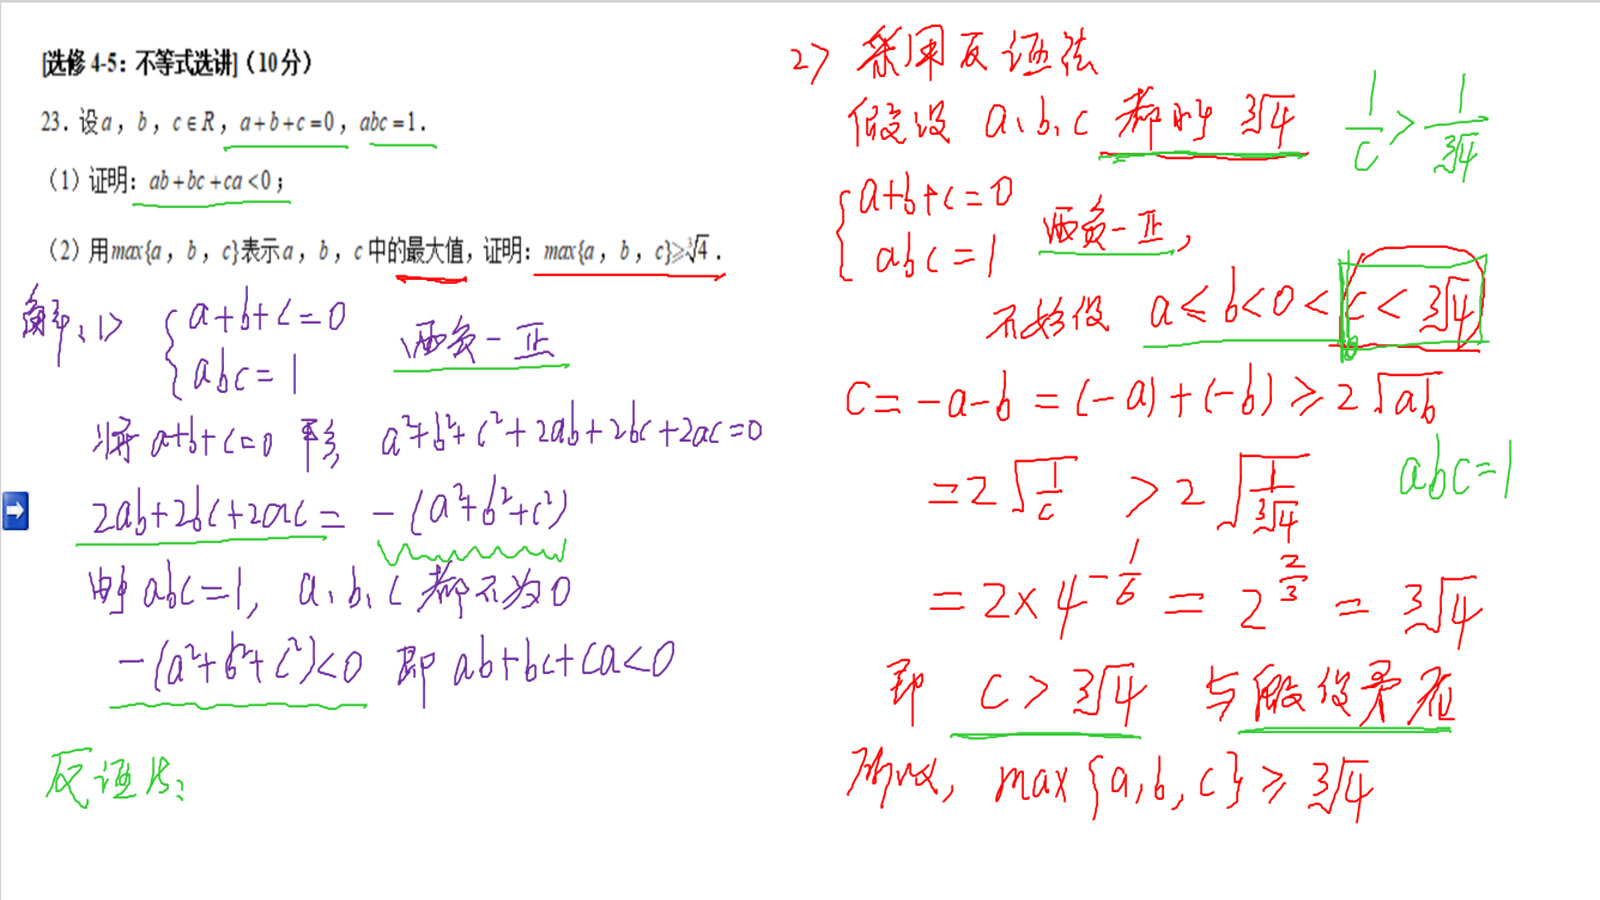 [选修 4-5：不等式选讲]（10 分）
23．设 a，b，c∈R，a+b+c=0，abc=1．
（1）证明：ab+bc+ca<0；
（2）用 max{a，b，c}表示 a，b，c 中的最大值，证明：max{a，b，c}≥∛4．
解：1) {a+b+c=0
abc=1 两负一正
将 a+b+c=0 平方 a²+b²+c²+2ab+2bc+2ac=0
2ab+2bc+2ac = -(a²+b²+c²)
由于 abc=1, a、b、c 都不为0
-(a²+b²+c²)<0 即 ab+bc+ca<0
反证法：
2) 采用反证法
假设 a、b、c 都小于 ∛4
1/c > 1/∛4
{a+b+c=0
abc=1 两负一正，
不妨设 a≤b<0<c<∛4
c=-a-b=(-a)+(-b)≥2√ab
=2√(1/c) > 2√(1/∛4)
abc=1
=2×4^(-1/6) = 2^(2/3) = ∛4
即 c>∛4 与假设矛盾
所以, max{a,b,c}≥∛4